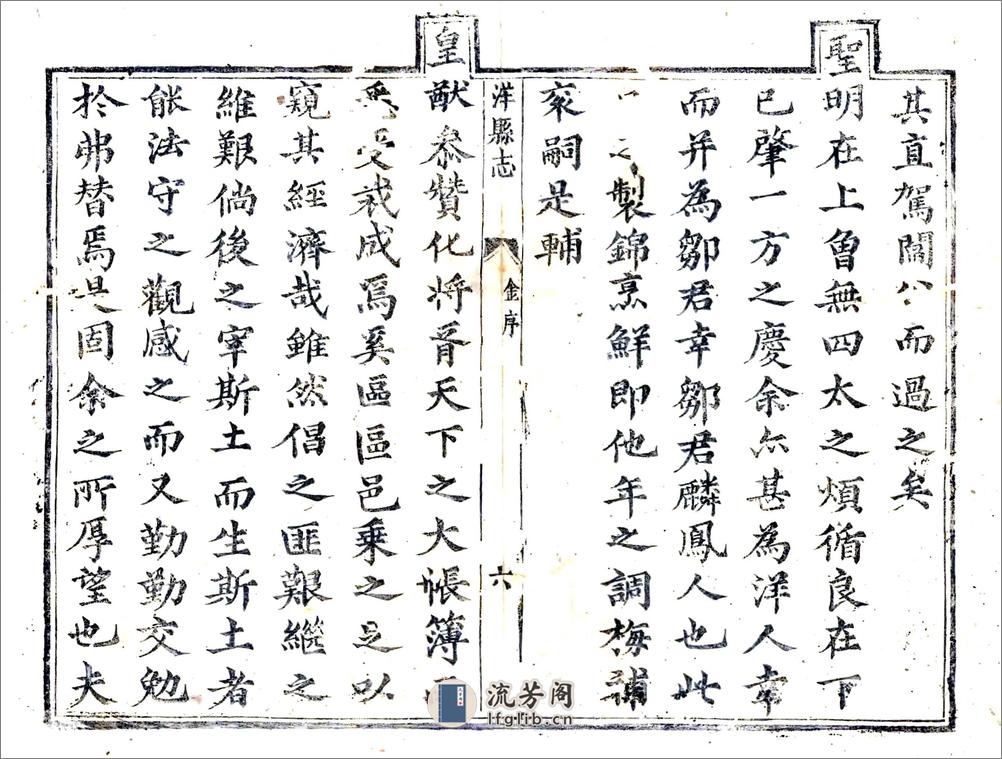 其直駕闊八而過之矣
聖
明在上曾無四太之煩循良在下
已肇一方之慶余尓甚為洋人幸
而并為鄒君幸鄒君麟鳳人也此
之製錦烹鮮即他年之調梅補
衮嗣是輔
洋縣志 金序 六
皇
猷叅贊化將胥天下之大帳簿
受裁成焉奚區區邑乗之足以
窺其經濟哉雖然倡之匪艱繼之
維艱倘後之宰斯土而生斯土者
能法守之觀感之而又勤勤交勉
扵弗替焉是固余之所厚望也夫
流芳阁
lfglib.cn